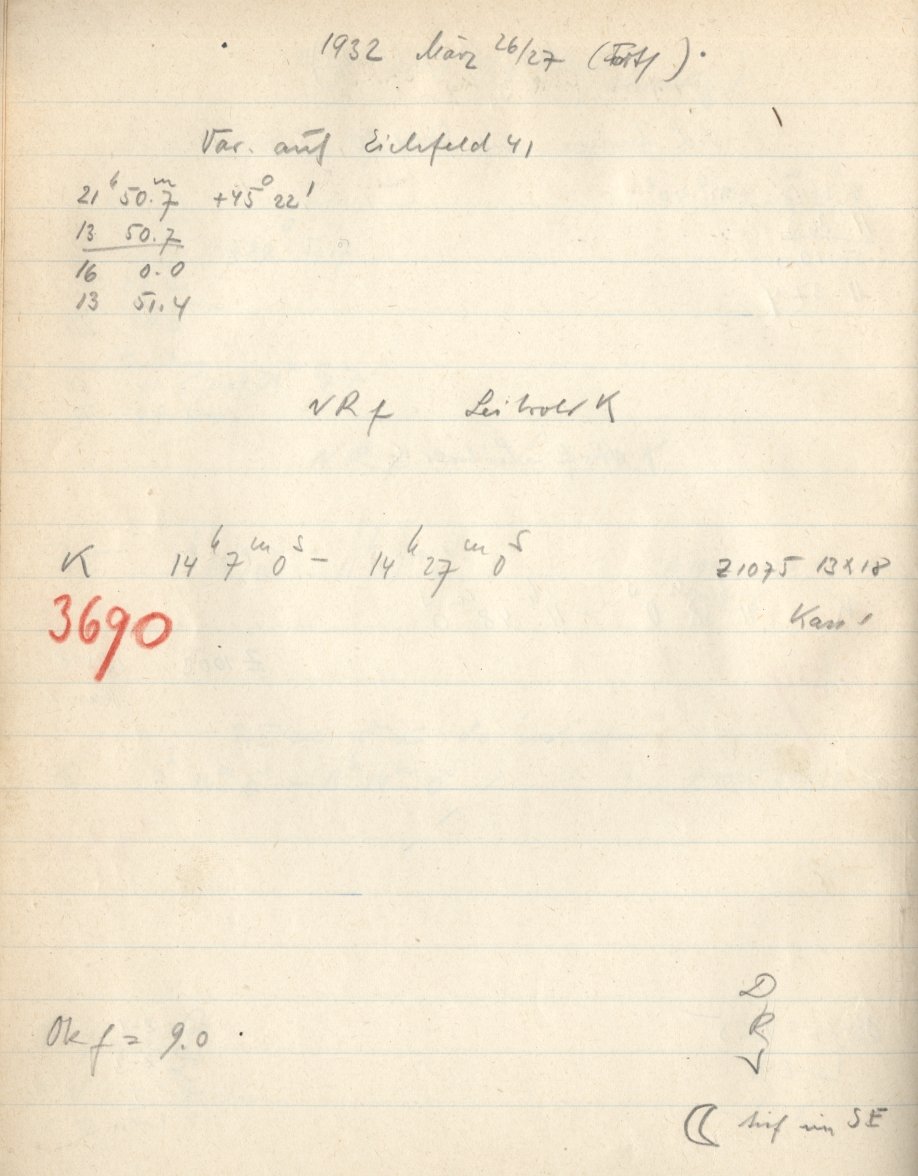 1932 März 26/27 (Forts.)
Var. auf Eichfeld 41
21ʰ 50.ᵐ7 +45° 22'
13 50.7
16 0.0
13 51.4
K
K 14ʰ 7ᵐ 0ˢ – 14ʰ 27ᵐ 0ˢ Z1075 13x18
Kass 1
3690
Ok f = 9.0
D
R
V
tief im SE